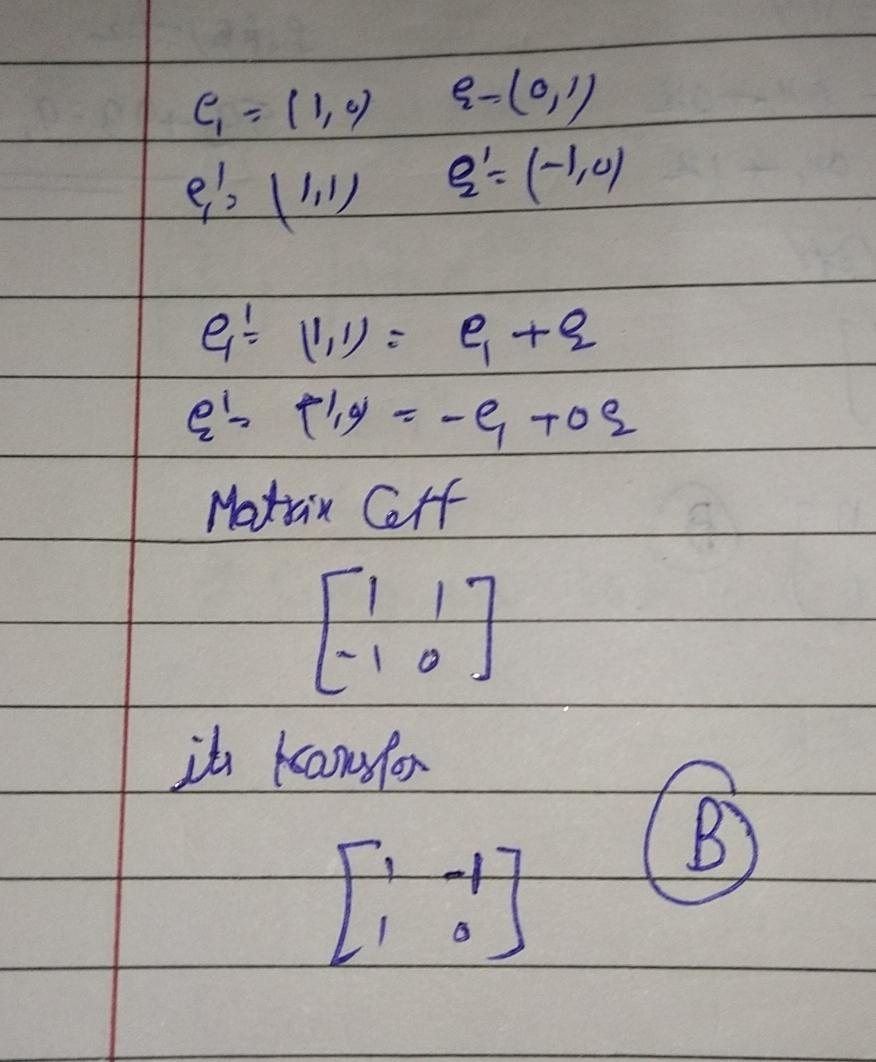 e₁ = (1,0) e₂ = (0,1)
e₁' = (1,1) e₂' = (-1,0)
e₁' = (1,1) = e₁ + e₂
e₂' = (-1,0) = -e₁ + 0e₂
Matrix Ceff
[1 1
-1 0]
its transfor
[1 -1
1 0]
B